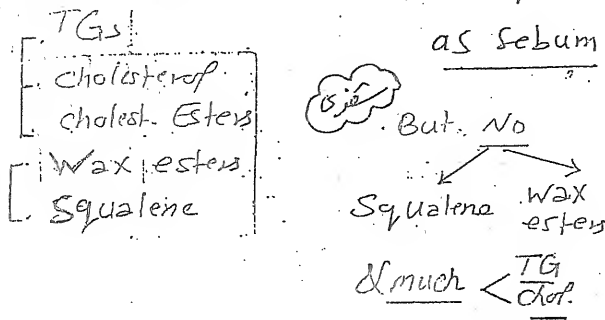 TGs
cholisterol
cholest. Esters
Wax esters
Squalene
as sebum
But. No
Squalene
Wax
esters
& much < TG
chol.